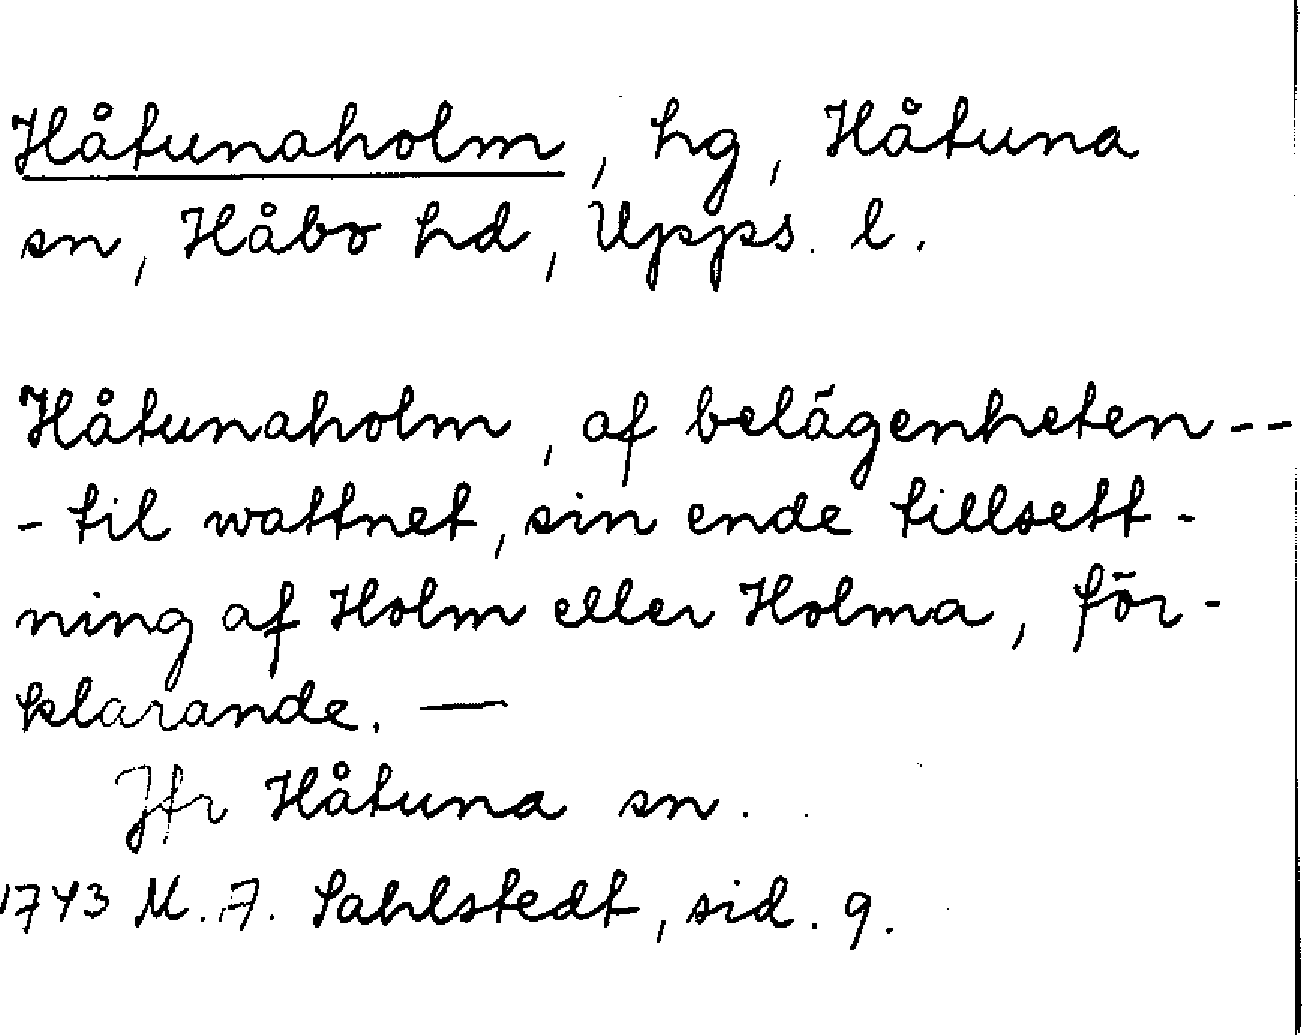 Håtunaholm, hg, Håtuna
sn, Håbo hd, Upps. l.
Håtunaholm, af belägenheten --
- til wattnet, sin ende tillsett-
ning af Holm eller Holma, för-
klarande. —
Jfr Håtuna sn.
1743 M. A. Sahlstedt, sid. 9.